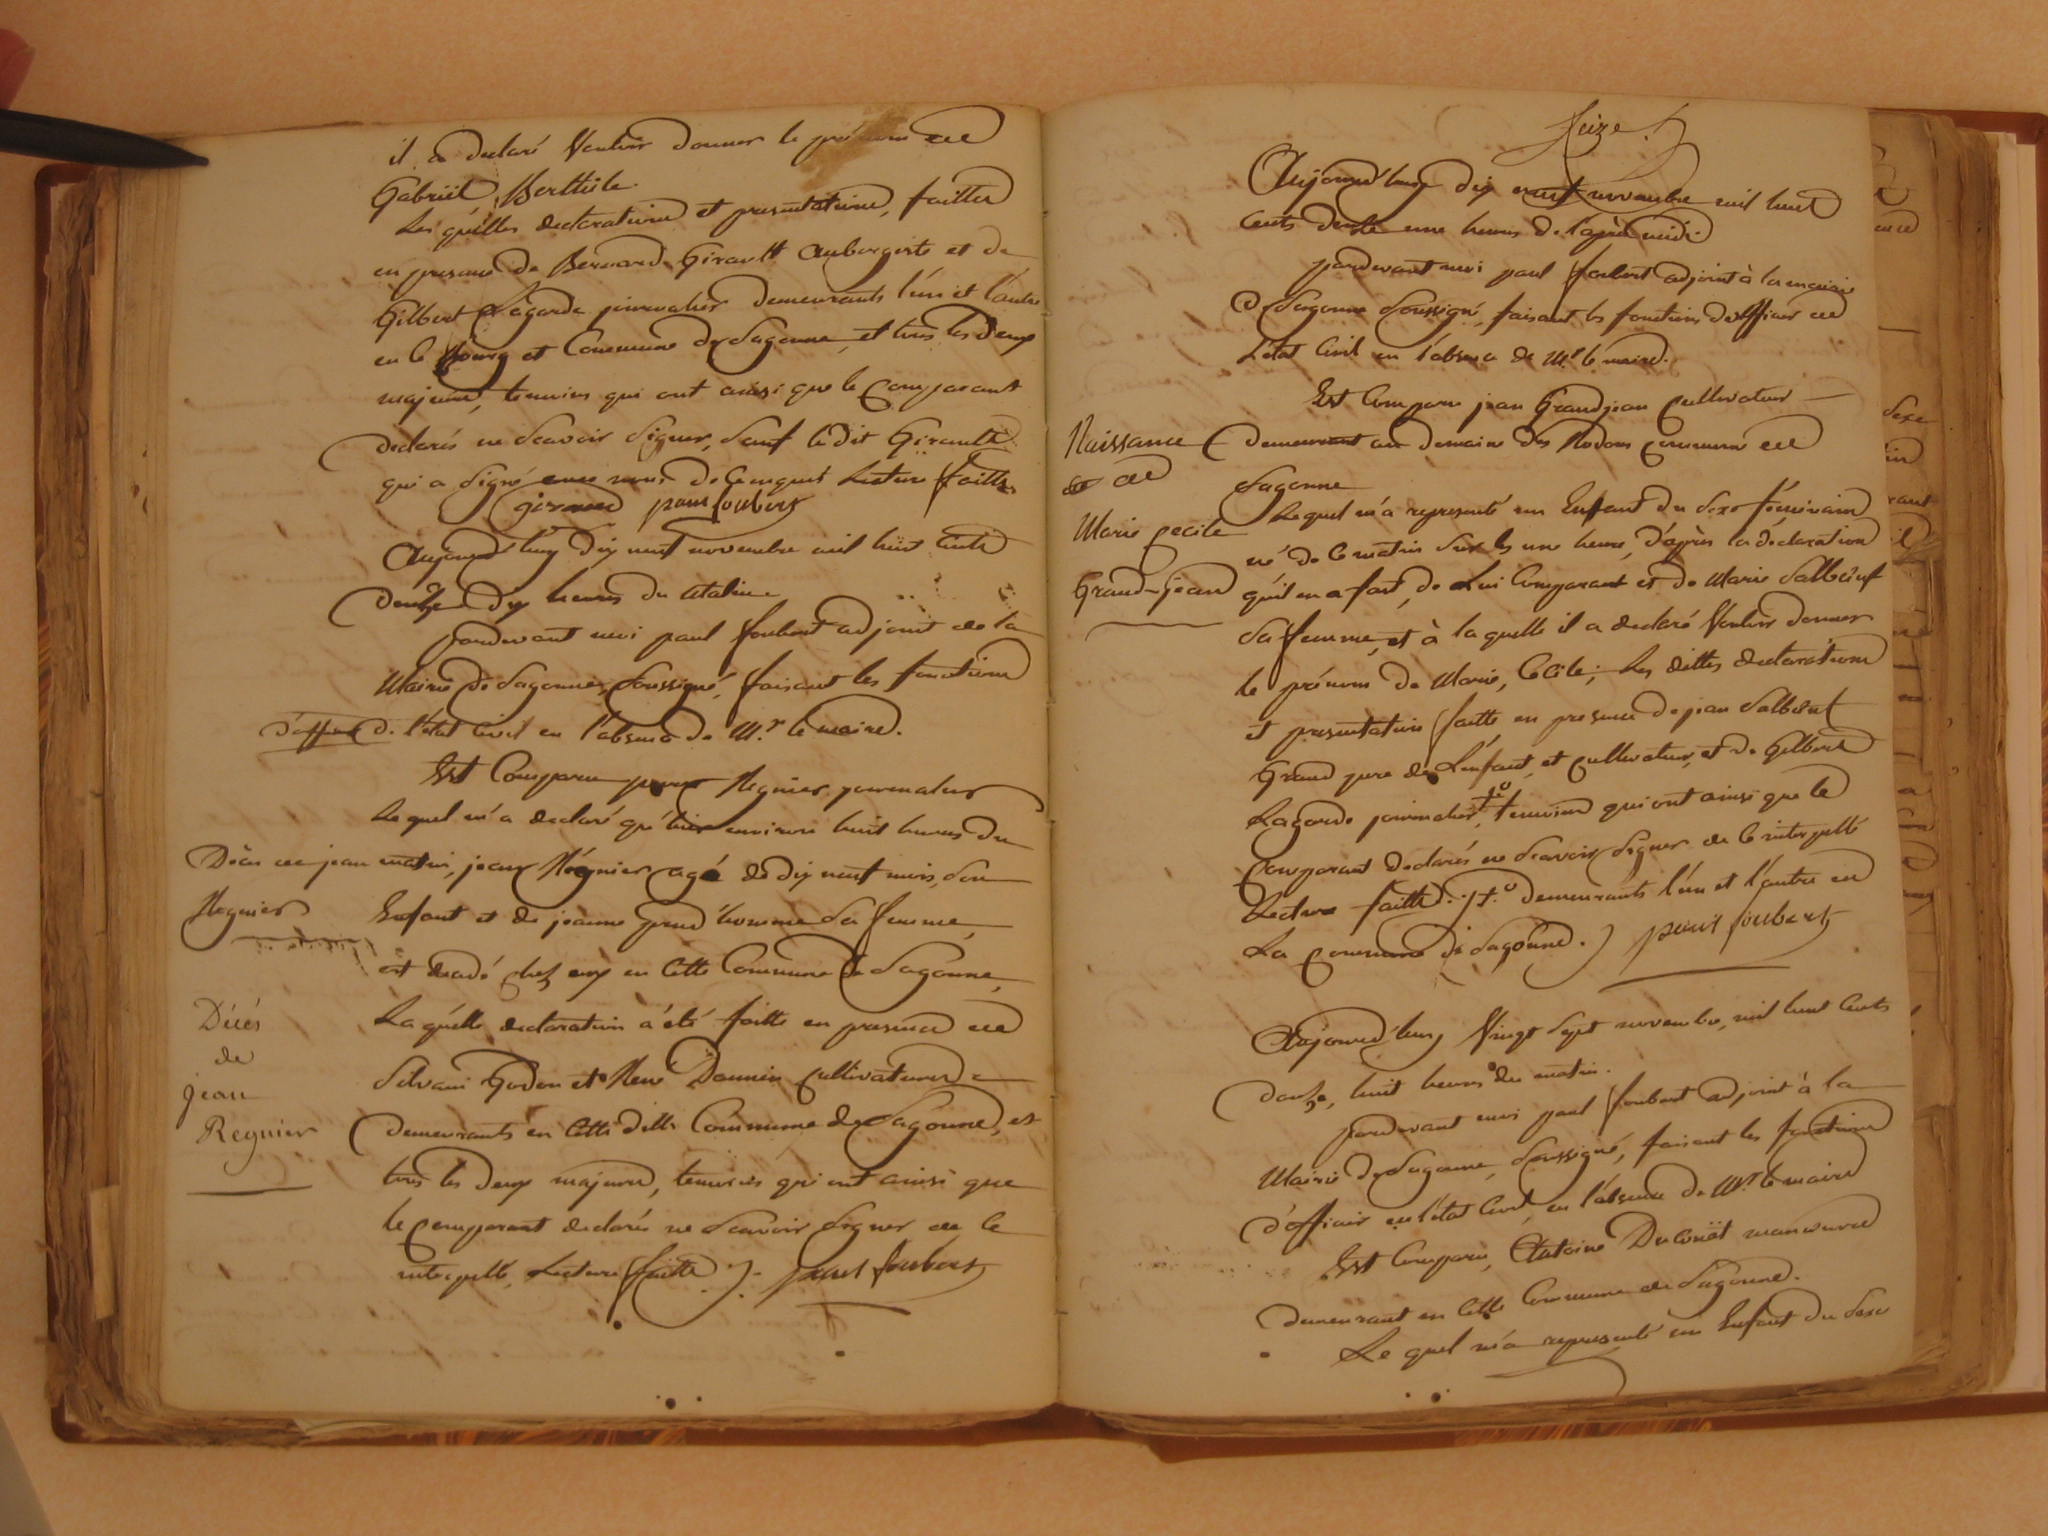 il a declaré Vouloir donner le prénom de
Gabriël, Berthile.
Les quelles declarations et presentations, faittes
en presence de Bernard Girault Aubergiste et de
Gilbert Lagarde journalier demeurants l'un et l'autre
en le Bourg et Commune de Sagonne, et tous les deux
majeurs, temoins qui ont ainsi que le Comparant
declarés ne Scavoir Signer, Sauf le dit Girault
qui a Signé avec nous de Ce enquis Lecture faitte.
giraud paul joubert
Aujourd'huy dix neuf novembre mil huit Cents
douze dix heures du Matin
pardevant moi paul joubert adjoint de la
Mairie de Sagonne, Soussigné, faisant les fonctions
d'officier de l'état Civil en l'absence de Mr. le maire.
Est Comparu Regnier journalier
Lequel m'a declaré qu'hier environ huit heures du
Décès de jean matin, jean Régnier agé de dix neuf mois, Son
Regnier Enfant et de jeanne prud'homme Sa femme,
est decedé chez eux en Cette Commune de Sagonne,
Décés
de
jean
Regnier
La quelle declaration a été faitte en presence de
Silvain Godon et René Dannin Cultivateurs
demeurants en Cette ditte Commune de Sagonne, et
tous les deux majeurs, temoins qui ont ainsi que
le Comparant declarés ne Scavoir Signer de Ce
interpellé, Lecture faitte. paul joubert
Seize.
Aujourd'huy dix neuf novembre mil huit
Cents douze une heures de l'après midi
pardevant moi paul joubert adjoint à la mairie
de Sagonne Soussigné, faisant les fonctions d'officier de
L'état Civil en l'absence de Mr. le maire.
Est Comparu jean Grandjean Cultivateur
Naissance
de
Marie Cecile
Grand-Jean
demeurant au domaine des Nodons Commune de
Sagonne
Lequel m'a représenté un Enfant du Sexe féminin
né de Ce matin Sur les une heure, d'après la déclaration
qu'il en a fait, de Lui Comparant et de Marie Salbœuf
Sa femme, et à la quelle il a declaré Vouloir donner
le prénoms de Marie, Cecile; Les dittes declarations
et presentation faitte en presence de jean Salbœuf
Grand pere de L'enfant, et Cultivateur, et de Gilbert
Lagarde journalier, temoins qui ont ainsi que le
Comparant declarés ne Scavoir Signer de Ce interpellé
Lecture faitte. demeurants l'un et l'autre en
La Commune de Sagonne. paul joubert
Aujourd'huy Vingt Sept novembre, mil huit Cents
douze, huit heures du matin.
pardevant moi paul joubert adjoint à la
Mairie de Sagonne, Soussigné, faisant les fonctions
d'officier de l'état Civil, en l'absence de Mr. le maire
Est Comparu, Antoine manœuvre
demeurant en Cette Commune de Sagonne.
Le quel m'a representé un Enfant du Sexe